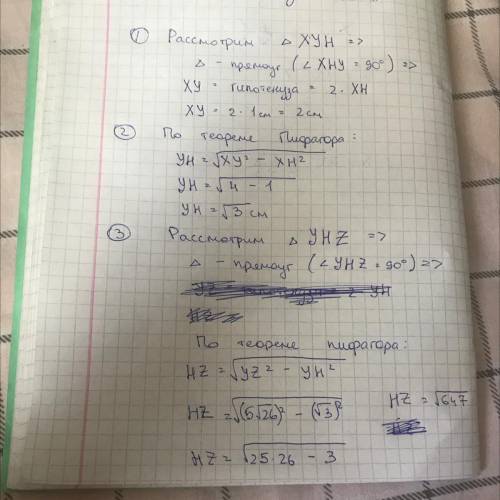 ① Рассмотрим △ XYH =>
△ - прямоуг (∠ XHY = 90°) =>
XY = гипотенуза = 2 · XH
XY = 2 · 1см = 2см
② По теореме Пифагора:
YH = √XY² - XH²
YH = √4 - 1
YH = √3 см
③ Рассмотрим △ YHZ =>
△ - прямоуг (∠ YHZ = 90°) =>
По теореме пифагора:
HZ = √YZ² - YH²
HZ = √(5√26)² - (√3)²
HZ = √647
HZ = √25·26 - 3